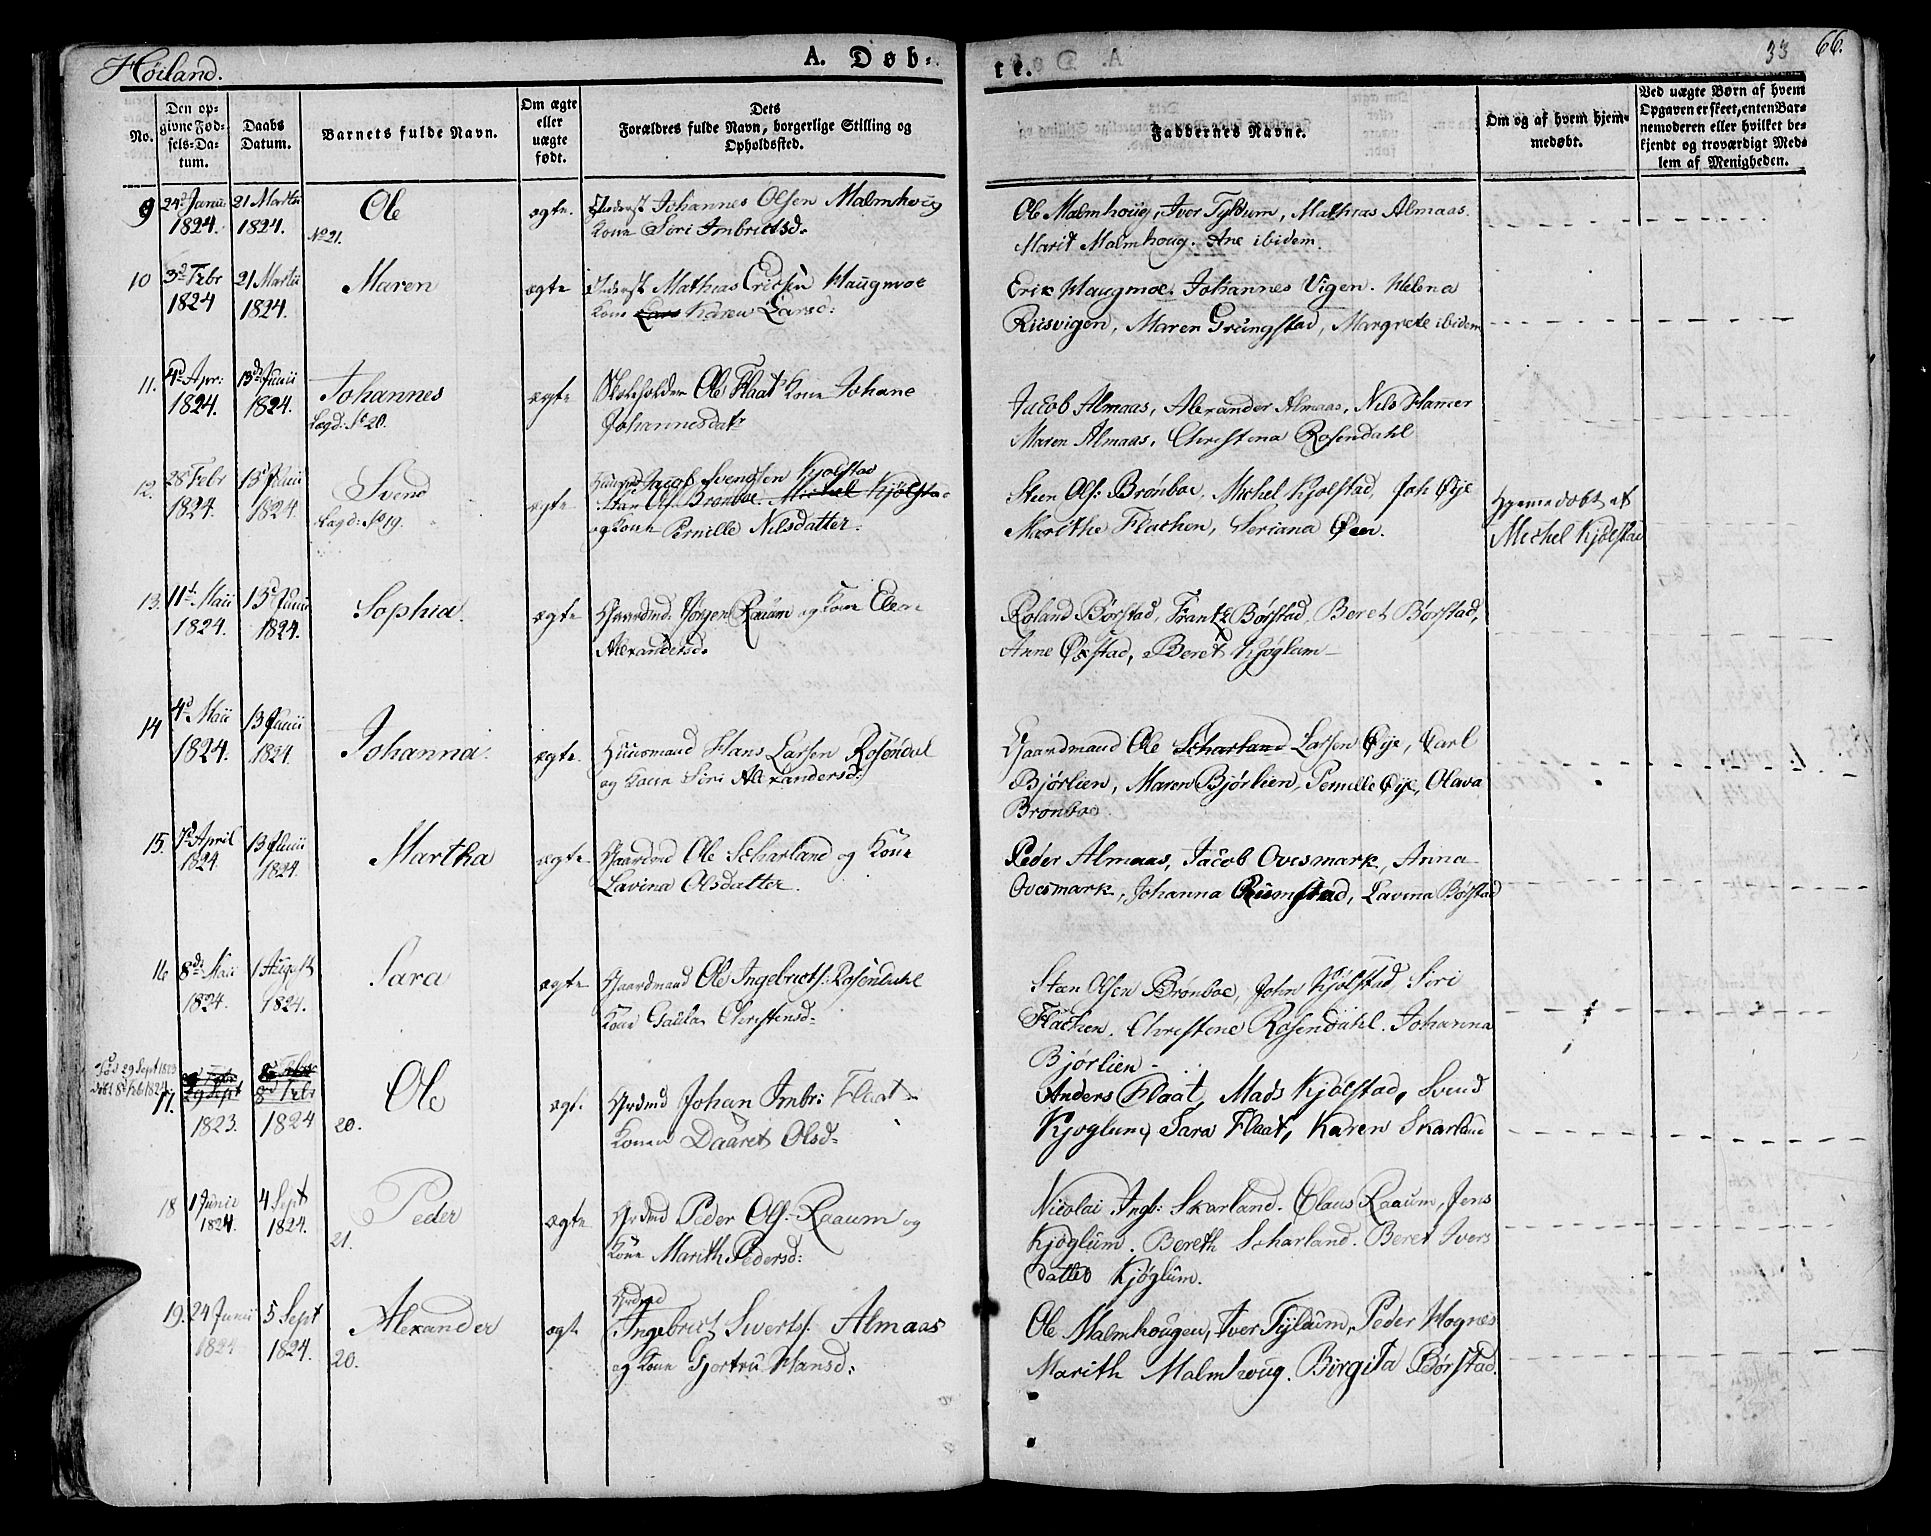 Høiland.
A. Døb-
te.
33
66.
No.
Den op-
givne Fød-
sels-Da-
tum.
Daabs
Datum.
Barnets fulde Navn.
Om ægte
eller
uægte
født.
Dets
Forældres fulde Navn, borgerlige Stilling og
Opholdsted.
Faddernes Navne.
Om og af hvem hjem-
medøbt.
Ved uægte Børn af hvem
Opgaven er skeet, enten Bar-
nemoderen eller hvilket be-
kjendt og troværdigt Med-
lem af Menigheden.
9 24d Janu 21 Martii Ole ægte. Johannes Olsen Malmhoug
1824. 1824. No 21. Kone Siri Imbrictsd.
Ole Malmhoug, Iver Tyldum, Mathias Almaas.
Marit Malmhoug. Ane ibidem.
10 3d Febr 21 Martii Maren ægte Mathias Ericsen Haugmoe
1824 1824. Kone Lars Karen Larsd:
Erik Haugmoe. Johannes Vigen. Helena
Riisvigen, Maren Grungstad, Margrete ibidem
11. 4d Apr: 13d Junii Johannes ægte Skoleholder Ole Flaat Kone Johane
1824. 1824. Lagd: No 20. Johannesdatr
Jacob Almaas, Alexander Almaas, Nils Hamer
Maren Almaas, Christena Rosendahl
12. 28 Febr 13d Junii Svend ægte Jacob Svendsen Kjølstad
Sten Ols: Brønboe. Michel Kjølstad
1824. 1824. Lagd: No 19. og Kone Pernille Nilsdatter.
Steen Ols: Brønboe, Michel Kjølstad, Joh Øije
Marithe Flachen, Seriana Øien.
Hjemmedøbt af
Michel Kjølstad
13. 11t Maii 13d Junii Sophia. ægte Gaardmd. Jørgen Raaum og Kone Elen
1824. 1824. Alexandersd.
Roland Børstad, Frantz Børstad, Beret Børstad,
Anne Øxstad, Beret Kjøglum
14 4d Maii 13 Junii Johanna. ægte. Huusmand Hans Larsen Rosendal
1824. 1824. og Kone Siri Alexandersd:
Gaardmand Ole Scharland Larsen Øije, Carl
Bjørlien, Maren Bjørlien, Pernille Øije, Olava
Brønboe
15. 7d April 13 Junii Martha ægte Gaardmd Ole Scharland og Kone
1824. 1824. Lavina Olsdatter.
Peder Almaas, Jacob Ovesmark, Anna
Ovesmark, Johanna Rumstad, Lavina Børstad
16 8de Maii 1 August Sara ægte Gaardmand Ole Ingebricts: Rosendahl
1824. 1824. Kone Christensd.
Steen Olsen Brønboe, John Kjølstad Siri
Flachen. Christene Rosendahl. Johanna
Bjørlien
Fød 29 Sept 1823
Døbt 8d Feb 1824
17. 29 Sept 8d Febr Ole ægt. Grdmd Johan Imbr: Flaat
1823. 1824 20. Konen Daaret Olsd.
Anders Flaat, Mads Kjølstad, Svend
Kjøglum, Sara Flaat, Karen Skarland
18 1 Junii 4 Sept Peder ægte Grdmd Peder Ols. Raaum og
1824. 1824. 21. Kone Marith Pedersd:
Nicolai Ingb: Skarland. Claus Raaum, Jens
Kjøglum. Bereth Scharland. Beret Ivers
datter Kjøglum.
19. 24 Junii 5 Sept Alexander ægt Grdmd
Ingebrict Siverts. Almaas
1824 1824. 20. og Kone Gjertru Hansd:
Ole Malmhougen, Iver Tyldum, Peder Hognes
Marith Malmhoug. Birgita Børstad.